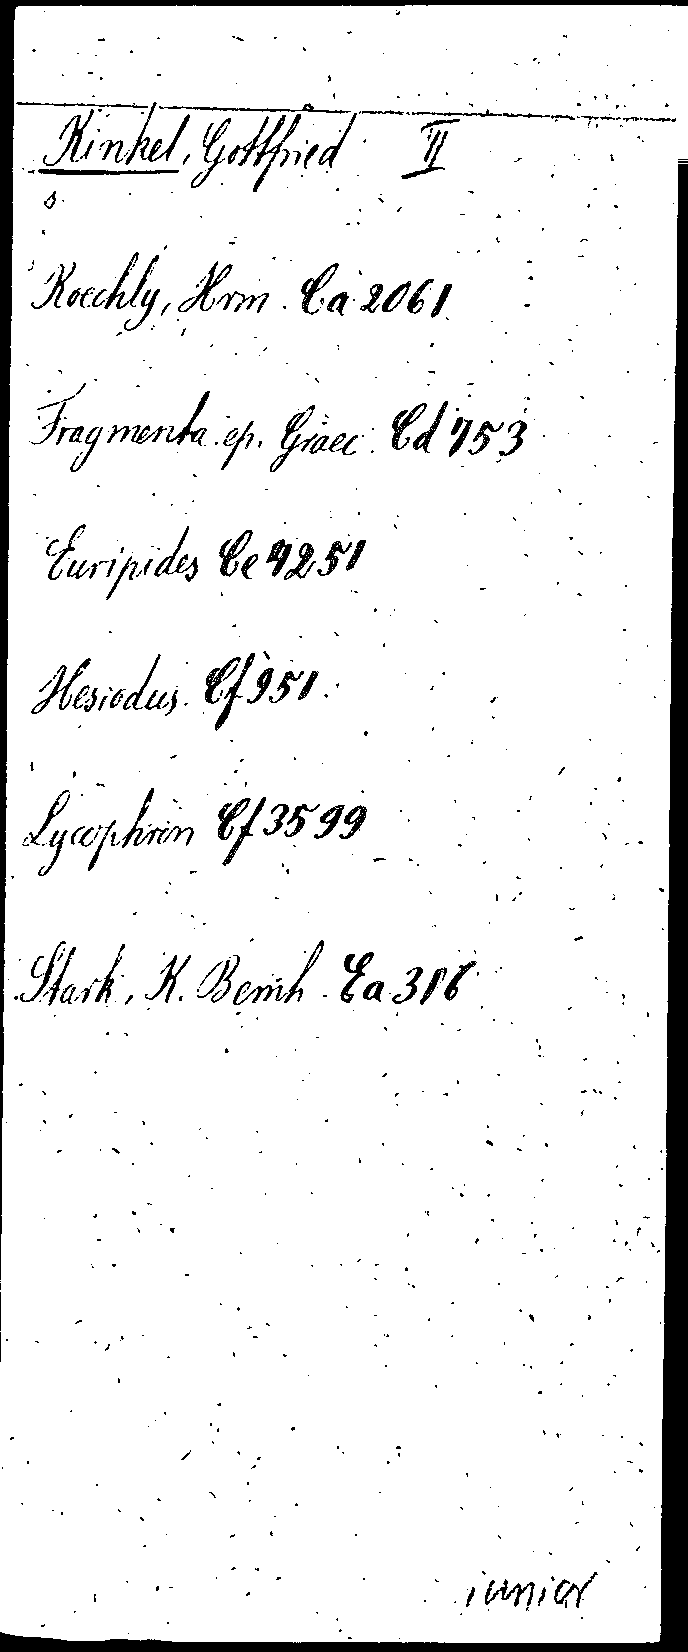 Kinkel, Gottfried II
s.
Koechly, Hrm. Ca 2061
Fragmenta ep. Graec. Cd 753
Euripides Ce 4251
Hesiodus. Cf 951.
Lycophron Cf 3599
Stark, K. Bernh. Ea 316
iunior